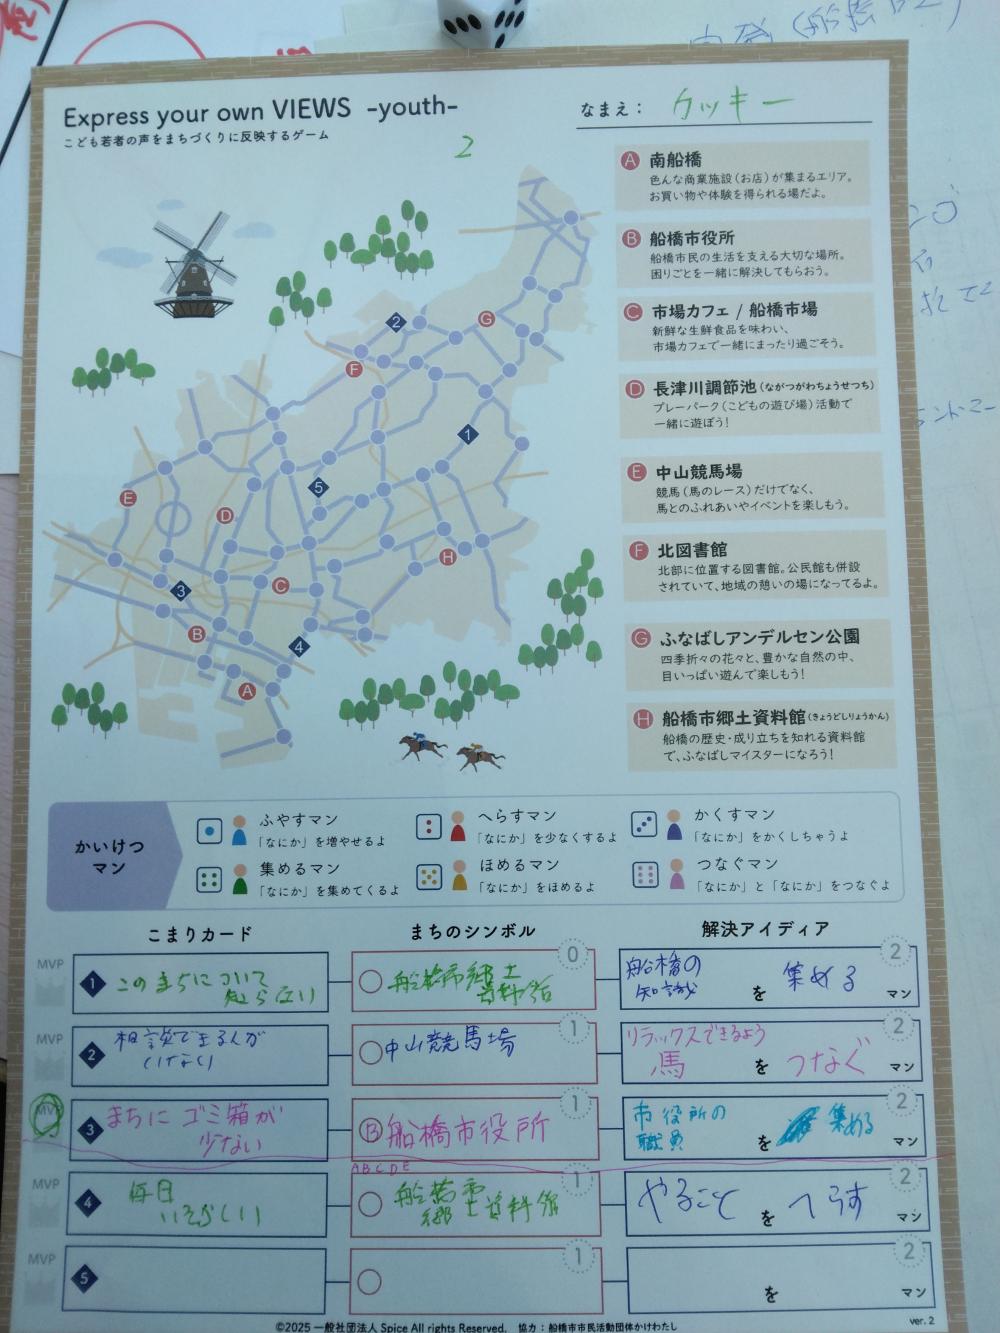 Express your own VIEWS -youth-
こども若者の声をまちづくりに反映するゲーム
なまえ： クッキー
2
A 南船橋
色んな商業施設（お店）が集まるエリア。
お買い物や体験を得られる場だよ。
B 船橋市役所
船橋市民の生活を支える大切な場所。
困りごとを一緒に解決してもらおう。
C 市場カフェ / 船橋市場
新鮮な生鮮食品を味わい、
市場カフェで一緒にまったり過ごそう。
D 長津川調節池（ながつがわちょうせつち）
プレーパーク（こどもの遊び場）活動で
一緒に遊ぼう！
E 中山競馬場
競馬（馬のレース）だけでなく、
馬とのふれあいやイベントを楽しもう。
F 北図書館
北部に位置する図書館。公民館も併設
されていて、地域の憩いの場になってるよ。
G ふなばしアンデルセン公園
四季折々の花々と、豊かな自然の中、
目いっぱい遊んで楽しもう！
H 船橋市郷土資料館（きょうどしりょうかん）
船橋の歴史・成り立ちを知れる資料館
で、ふなばしマイスターになろう！
2
G
F
1
5
E
D
H
C
3
B
4
A
かいけつ
マン
ふやすマン
「なにか」を増やせるよ
へらすマン
「なにか」を少なくするよ
かくすマン
「なにか」をかくしちゃうよ
集めるマン
「なにか」を集めてくるよ
ほめるマン
「なにか」をほめるよ
つなぐマン
「なにか」と「なにか」をつなぐよ
こまりカード まちのシンボル 解決アイディア
MVP
1 このまちについて
知らない
船橋市郷土
資料館
0
船橋の
知識 を 集める マン
2
MVP
2 相談できる人が
いない
中山競馬場
1
リラックスできるよう
馬 を つなぐ マン
2
MVP
3 まちにゴミ箱が
少ない
B 船橋市役所
1
市役所の
職員 を 集める マン
2
A B C D E
MVP
4 毎日
いそがしい
1
やること を へらす マン
2
MVP
5
1
を マン
2
©2025 一般社団法人 Spice All rights Reserved. 協力：船橋市市民活動団体かけわたし
ver. 2